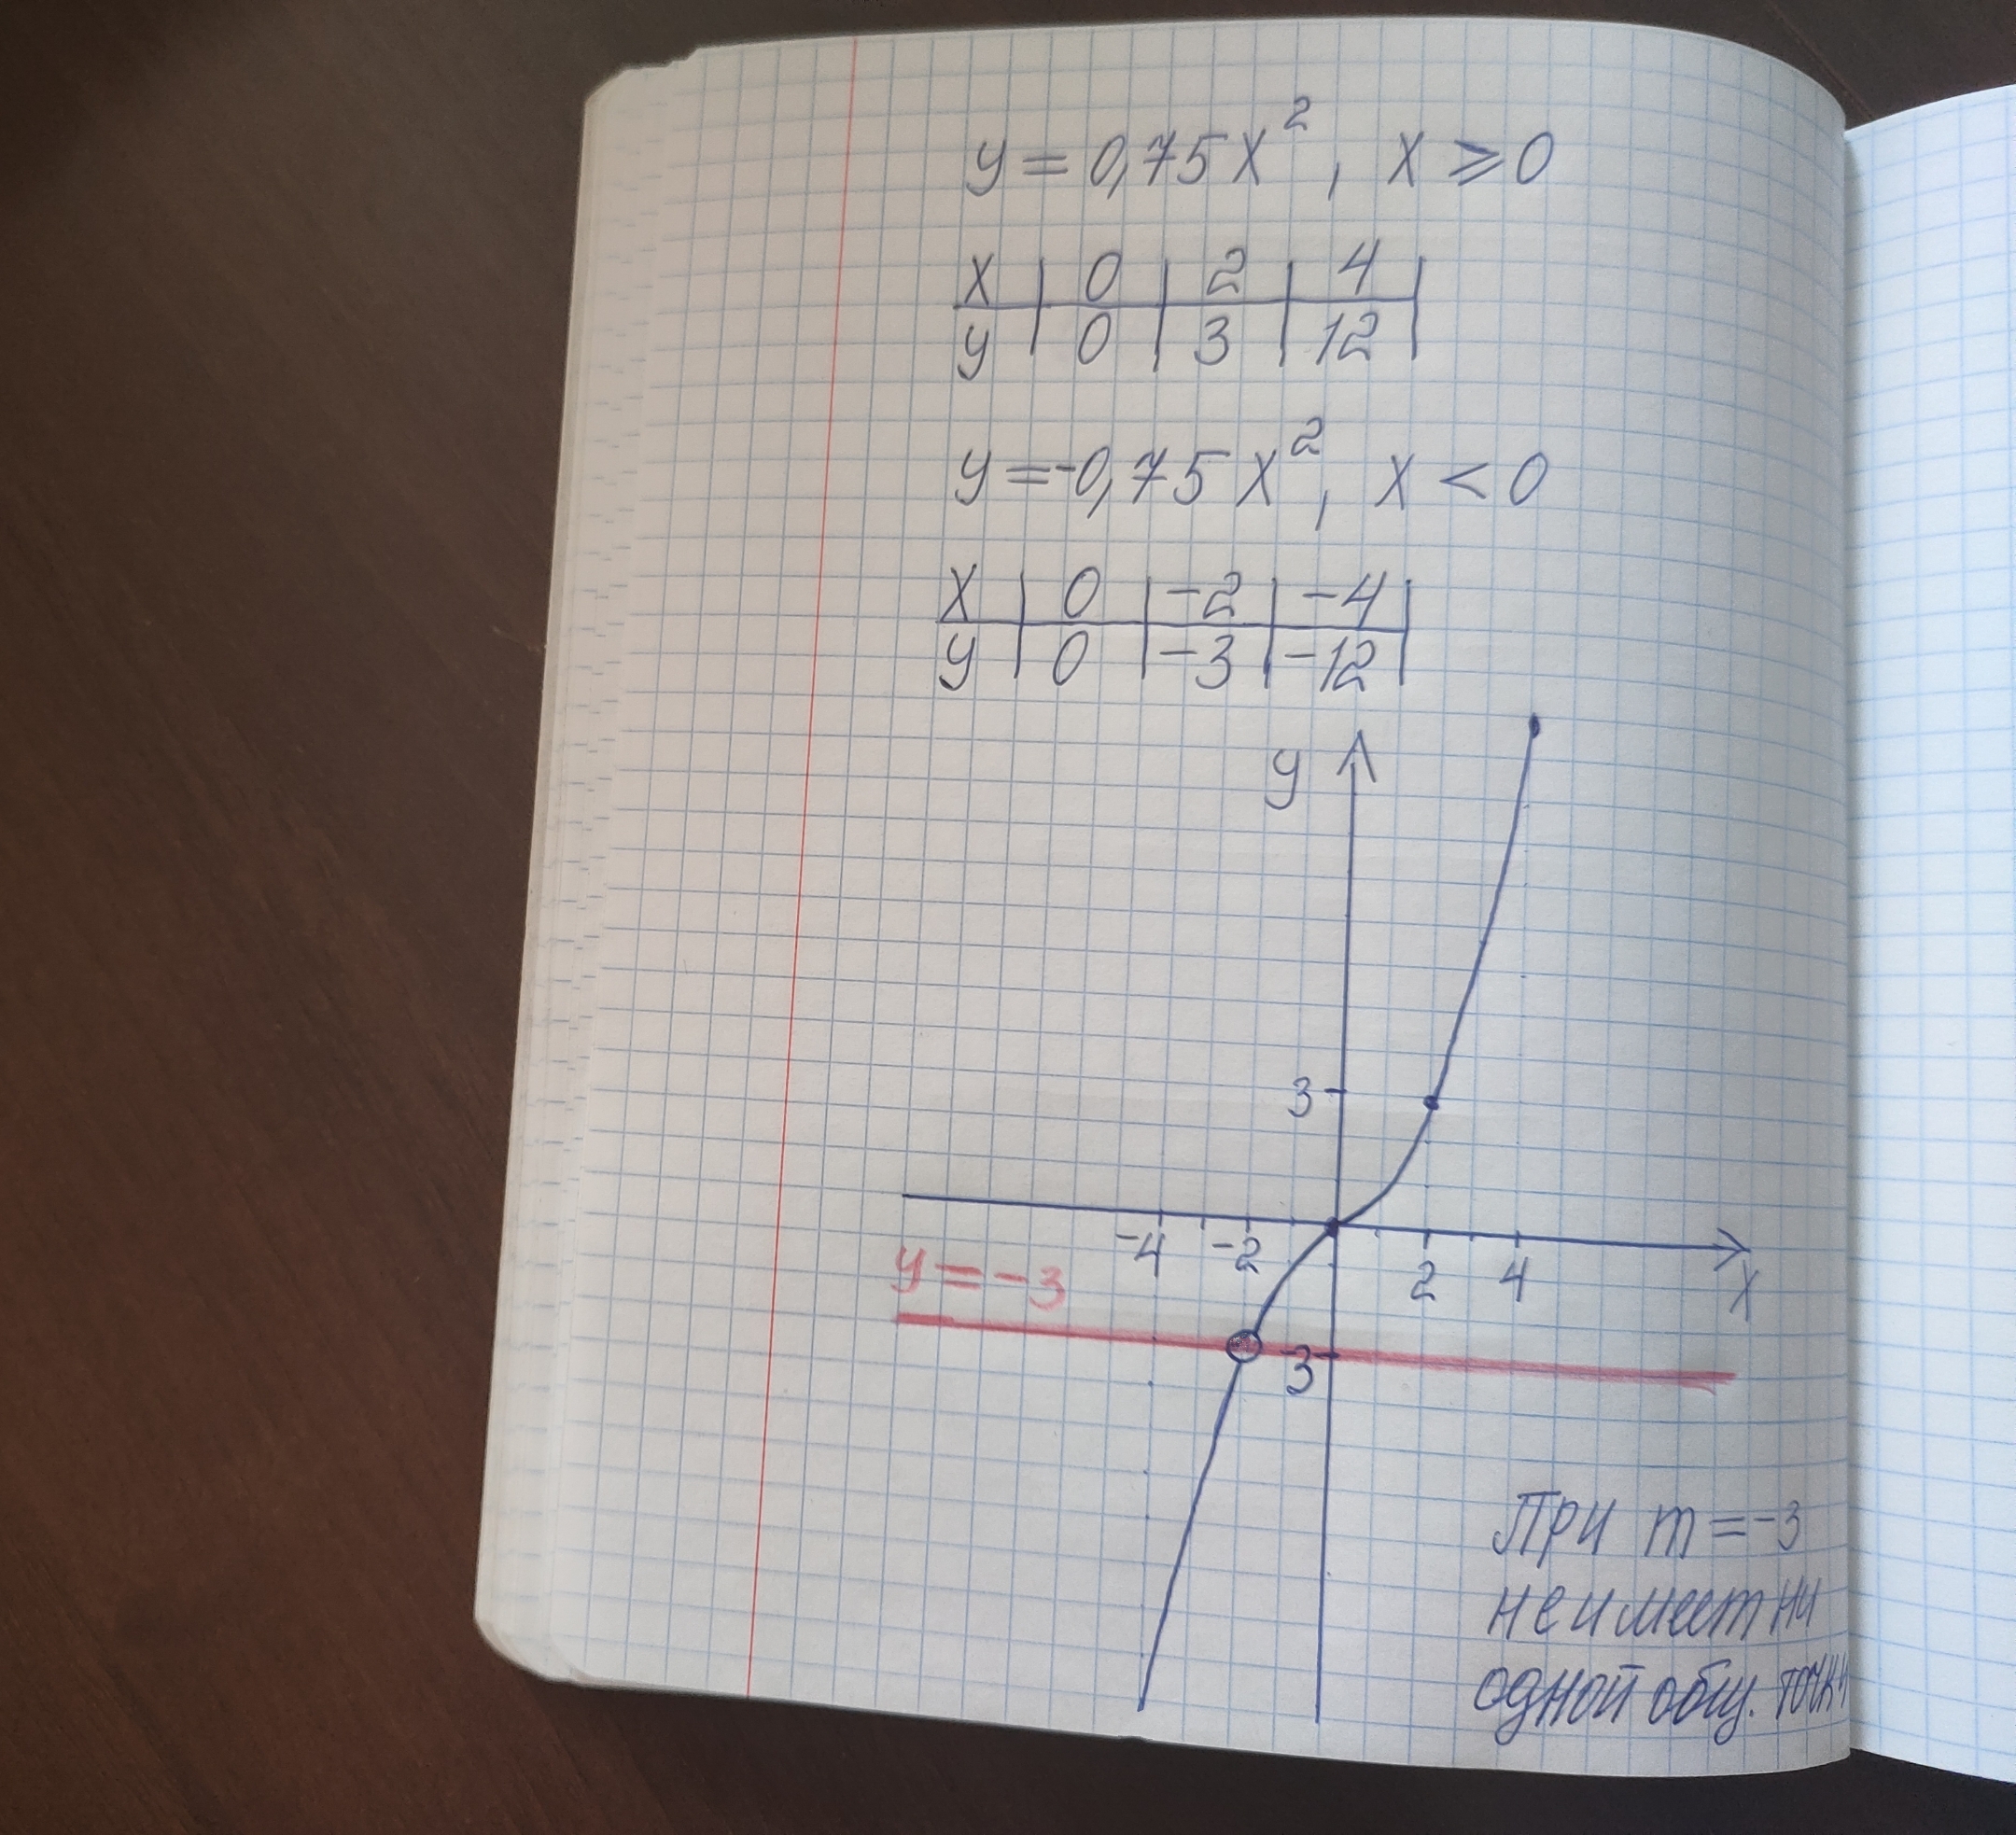 y = 0,75x², x ⩾ 0
x | 0 | 2 | 4 |
y | 0 | 3 | 12 |
y = -0,75x², x < 0
x | 0 | -2 | -4 |
y | 0 | -3 | -12 |
y
3
-4 -2 2 4 x
y = -3
-3
При m = -3
не имеет ни
одной общ. точки